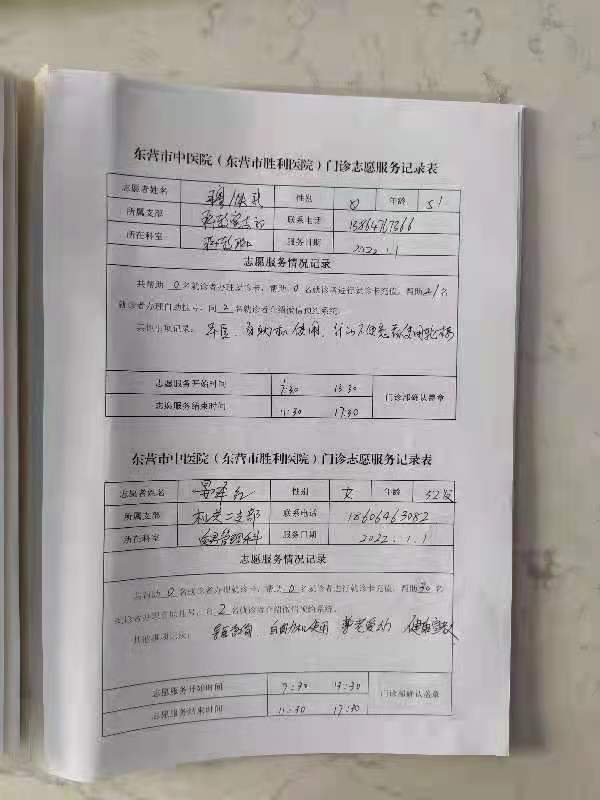 东营市中医院（东营市胜利医院）门诊志愿服务记录表
志愿者姓名 性别 女 年龄 51
所属支部 联系电话
所在科室 服务日期 2022.1.1
志愿服务情况记录
共帮助 0 名就诊者办理就诊卡，帮助 0 名就诊者进行就诊卡充值，帮助 名
就诊者办理自助挂号，向 2 名就诊者介绍微信预约系统。
其他事项记录：导医、自助机使用、行动不便患者使用轮椅
志愿服务开始时间 7:30 13:30 门诊部确认盖章
志愿服务结束时间 11:30 17:30
东营市中医院（东营市胜利医院）门诊志愿服务记录表
志愿者姓名 性别 女 年龄 52岁
所属支部 机关二支部 联系电话 18606463082
所在科室 服务日期 2022.1.1
志愿服务情况记录
共帮助 0 名就诊者办理就诊卡，帮助 0 名就诊者进行就诊卡充值，帮助 30 名
就诊者办理自助挂号，向 2 名就诊者介绍微信预约系统。
其他事项记录： 自助机使用
志愿服务开始时间 7:30 13:30 门诊部确认盖章
志愿服务结束时间 11:30 17:30